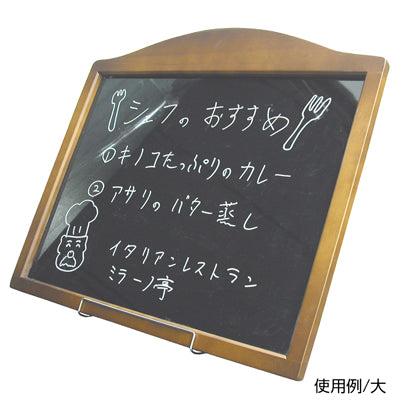 シェフの おすすめ
① キノコたっぷりのカレー
② アサリの バター蒸し
イタリアンレストラン
ミラーノ亭
使用例/大